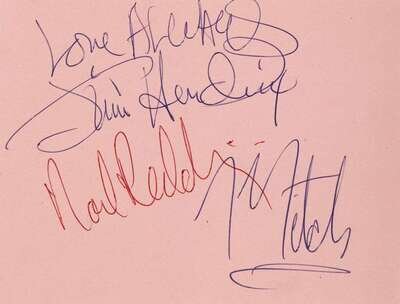 Love Always
Jimi Hendrix
Noel Redding
Mitch